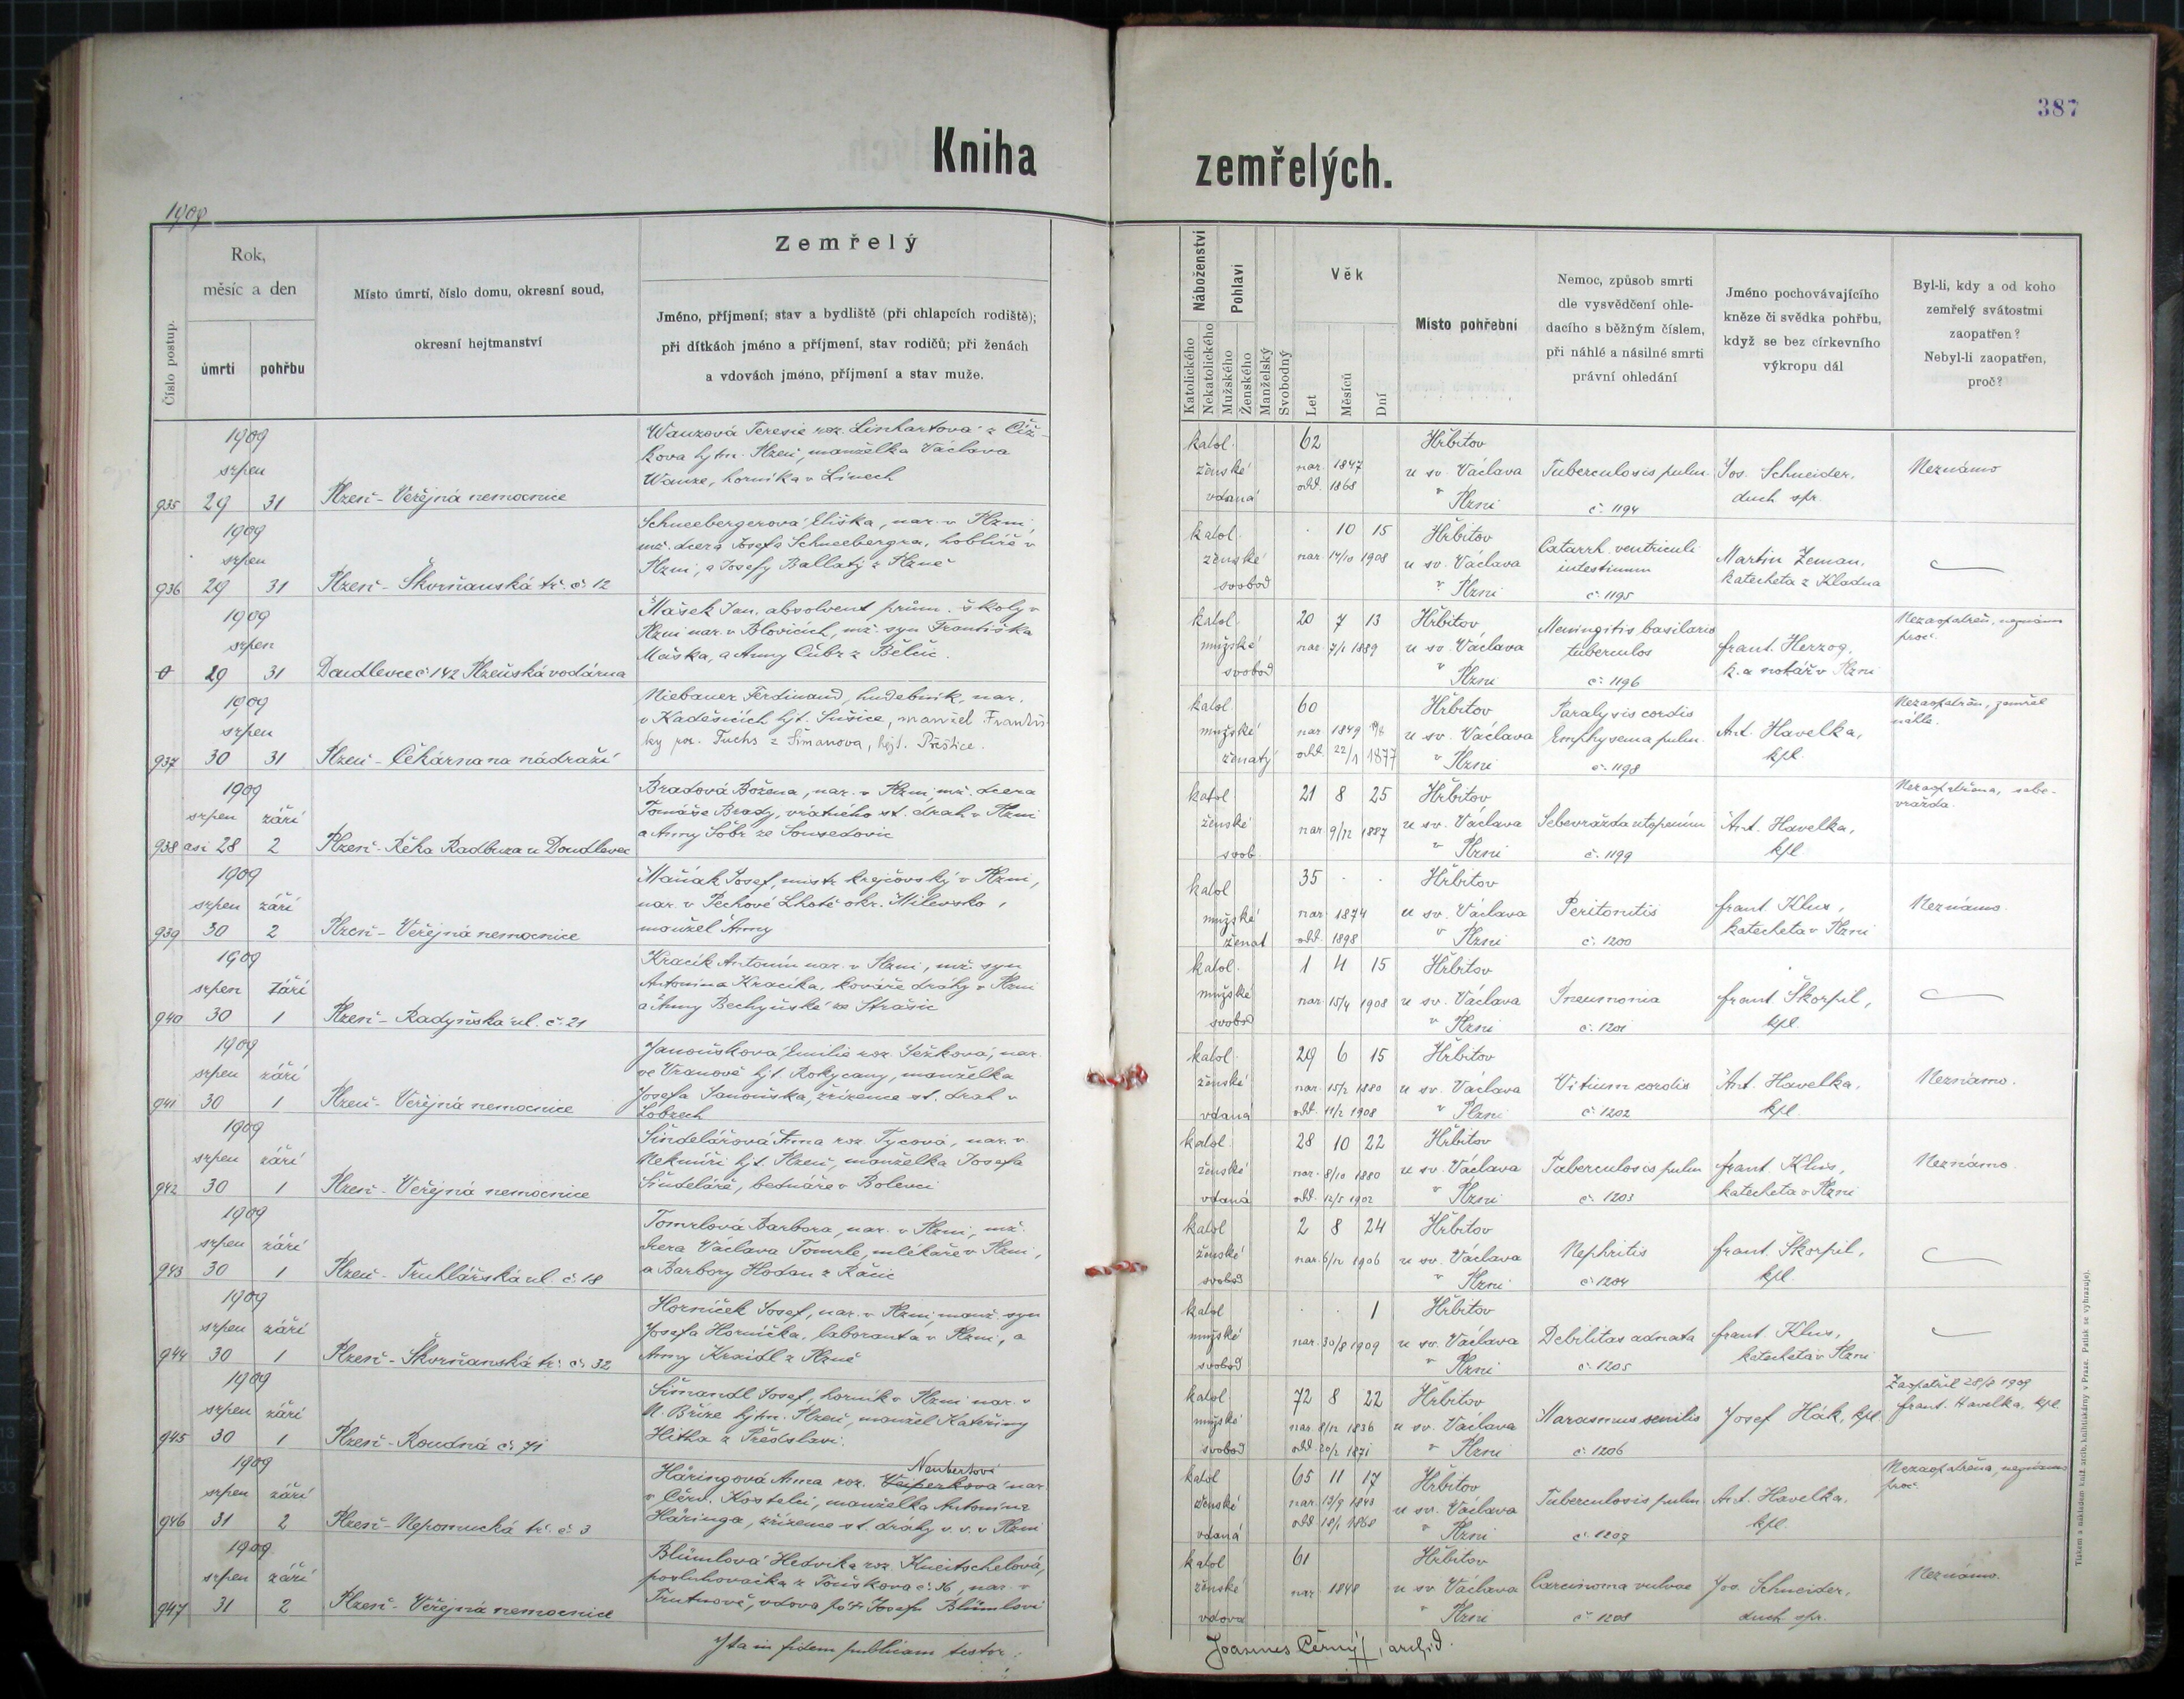 387
Kniha zemřelých.
1909
Číslo postup.
Rok,
měsíc a den
úmrtí
pohřbu
Místo úmrtí, číslo domu, okresní soud,
okresní hejtmanství
Zemřelý
Jméno, příjmení; stav a bydliště (při chlapcích rodiště);
při dítkách jméno a příjmení, stav rodičů; při ženách
a vdovách jméno, příjmení a stav muže.
Náboženství
Katolického
Nekatolického
Pohlaví
Mužského
Ženského
Manželský
Svobodný
Věk
Let
Měsíců
Dní
Místo pohřební
Nemoc, způsob smrti
dle vysvědčení ohle-
dacího s běžným číslem,
při náhlé a násilné smrti
právní ohledání
Jméno pochovávajícího
kněze či svědka pohřbu,
když se bez církevního
výkropu dál
Byl-li, kdy a od koho
zemřelý svátostmi
zaopatřen?
Nebyl-li zaopatřen,
proč?
1909
srpen
935 29 31
Plzeň - Veřejná nemocnice
Wanzová Teresie roz. Linhartová z Číž-
kova hjtm. Plzeň, manželka Václava
Wanze, horníka v Línech
katol. ženské vdaná
62
nar. 1847
odd. 1868
Hřbitov
u sv. Václava
v Plzni
Tuberculosis pulm.
č. 1194
Jos. Schneider,
duch spr.
Neznámo
1909
srpen
936 29 31
Plzeň - Škvrňanská tř. č. 12
Schneebergerová Eliška, nar. v Plzni,
mž. dcera Josefa Schneebergra, hoblíře v
Plzni, a Josefy Ballatý z Plzně
katol. ženské svobod
10 15
nar. 14/10 1908
Hřbitov
u sv. Václava
v Plzni
Catarrh. ventriculi
intestinum
č. 1195
Martin Zeman,
katecheta z Kladna
1909
srpen
0 29 31
Doudlevce č 142 Plzeňská vodárna
Mašek Jan, absolvent prům. školy v
Plzni nar. v Blovicích, mž. syn Františka
Maška, a Anny Cúbr z Bělčic.
katol. mužské svobod
20 7 13
nar. 7/1 1889
Hřbitov
u sv. Václava
v Plzni
Meningitis basilaris
tuberculos
č. 1196
frant. Herzog,
k. a notář v Plzni
Nezaopatřen, neznámo
proč.
1909
srpen
937 30 31
Plzeň - Čekárna na nádraží
Niebauer Ferdinand, hudebník, nar.
v Kadešicích hjt. Sušice, manžel Františ-
ky roz. Fuchs z Šimanova, hejt. Přeštice.
katol mužské ženatý
60
nar 1849
odd. 22/1 1877
Hřbitov
u sv. Václava
v Plzni
Paralysis cordis
Emphysema pulm.
č. 1198
Ant. Havelka,
kpl.
Nezaopatřen, zemřel
náhle.
1909
srpen září
938 asi 28 2
Plzeň - Řeka Radbuza u Doudlevec
Bradová Božena, nar. v Plzni, mž. dcera
Tomáše Brady, vrátného st. drah v Plzni
a Anny Šobr ze Sousedovic
katol ženské svob.
21 8 25
nar 9/12 1887
Hřbitov
u sv. Václava
v Plzni
Sebevražda utopením
č. 1199
Ant. Havelka,
kpl.
Nezaopatřena, sebe-
vražda.
1909
srpen září
939 30 2
Plzeň - Veřejná nemocnice
Maňák Josef, mistr krejčovský v Plzni,
nar. v Pechově Lhotě okr. Milevsko,
manžel Anny
katol mužské ženat
35
nar. 1874
odd. 1898
Hřbitov
u sv. Václava
v Plzni
Peritonitis
č. 1200
frant. Klus,
katecheta v Plzni
Neznámo.
1909
srpen Září
940 30 1
Plzeň - Radyňská ul. č. 21
Kracík Antonín nar. v Plzni, mž. syn
Antonína Kracíka, kováře dráhy v Plzni
a Anny Bechyňské ze Strašic
katol. mužské svobod
1 4 15
nar. 15/4 1908
Hřbitov
u sv. Václava
v Plzni
Pneumonia
č. 1201
frant Škorpil,
kpl.
1909
srpen září
941 30 1
Plzeň - Veřejná nemocnice
Janoušková Emilie roz. Ježková, nar.
ve Vranově hjt. Rokycany, manželka
Josefa Janouška, zřízence st. drah v
Lobzech
katol. ženské vdaná
29 6 15
nar. 15/2 1880
odd. 11/2 1908
Hřbitov
u sv. Václava
v Plzni
Vitium cordis
č. 1202
Ant. Havelka,
kpl.
Neznámo.
1909
srpen září
942 30 1
Plzeň - Veřejná nemocnice
Šindelářová Anna roz. Tycová, nar. v
Nekmíři hjt. Plzeň, manželka Josefa
Šindeláře, bednáře v Bolevci
katol. ženské vdaná
28 10 22
nar. 8/10 1880
odd. 12/5 1902
Hřbitov
u sv. Václava
v Plzni
Tuberculosis pulm
č. 1203
frant. Klus,
katecheta v Plzni
Neznámo.
1909
srpen září
943 30 1
Plzeň - Truhlářská ul. č. 18
Tomrlová Barbora, nar. v Plzni, mž.
dcera Václava Tomrle, mlékaře v Plzni,
a Barbory Hodan z Račic
katol ženské svobod
2 8 24
nar. 6/12 1906
Hřbitov
u sv. Václava
v Plzni
Nephritis
č. 1204
frant. Škorpil,
kpl.
1909
srpen září
944 30 1
Plzeň - Škvrňanská tř. č. 32
Horníček Josef, nar. v Plzni, manž. syn
Josefa Horníčka, laboranta v Plzni, a
Anny Kreidl z Plzně
katol mužské svobod
1
nar. 30/8 1909
Hřbitov
u sv. Václava
v Plzni
Debilitas adnata
č. 1205
frant. Klus,
katecheta v Plzni
1909
srpen září
945 30 1
Plzeň - Roudná č. 71
Šimandl Josef, horník v Plzni nar. v
H. Bříze hjtm. Plzeň, manžel Kateřiny
Hitka z Předslavi.
katol mužské svobod
72 8 22
nar. 8/12 1836
odd. 20/2 1871
Hřbitov
u sv. Václava
v Plzni
Marasmus senilis
č. 1206
Josef Hák, kpl.
Zaopatřil 28/8 1909
frant. Havelka, kpl
1909
srpen září
946 31 2
Plzeň - Nepomucká tř. č. 3
Neubertová
Häringová Anna roz. Veiperková nar.
v Červ. Kostelci, manželka Antonína
Häringa, zřízence st. dráhy v. v. v Plzni
katol ženské vdaná
65 11 17
nar. 13/9 1843
odd 18/1 1868
Hřbitov
u sv. Václava
v Plzni
Tuberculosis pulm.
č. 1207
Ant. Havelka,
kpl.
Nezaopatřena, neznámo
proč.
1909
srpen září
947 31 2
Plzeň - Veřejná nemocnice
Blümlová Hedvika roz. Kneitschelová,
posluhovačka z Touškova č. 36, nar. v
Trutnově, vdova po † Josefu Blümlovi
katol ženské vdova
61
nar 1848
Hřbitov
u sv. Václava
v Plzni
Carcinoma vulvae
č. 1208
Jos. Schneider,
duch spr.
Neznámo.
Ita in fidem publicam testor:
Joannes Černý, archid.
Tiskem a nákladem kníž. arcib. knihtiskárny v Praze. Patisk se vyhrazuje).